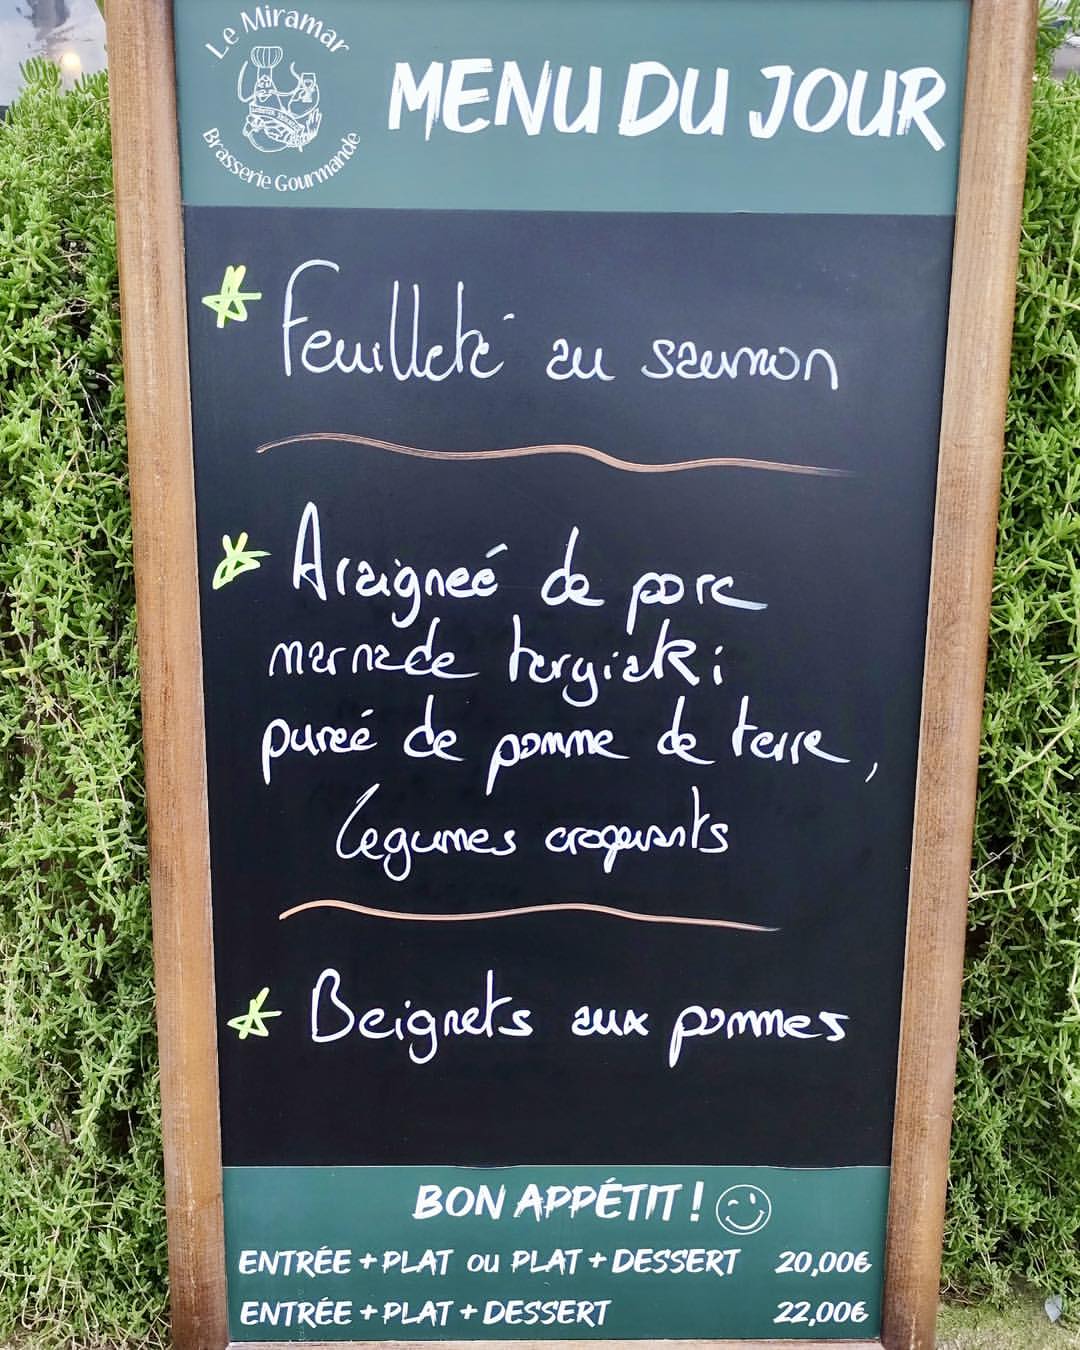 Le Miramar
Brasserie Gourmande
MENU DU JOUR
Feuilleté au saumon
Araigneé de porc
marnade teryiaki
pureé de pomme de terre,
légumes croquants
Beignets aux pommes
BON APPÉTIT !
ENTRÉE + PLAT ou PLAT + DESSERT 20,00€
ENTRÉE + PLAT + DESSERT 22,00€